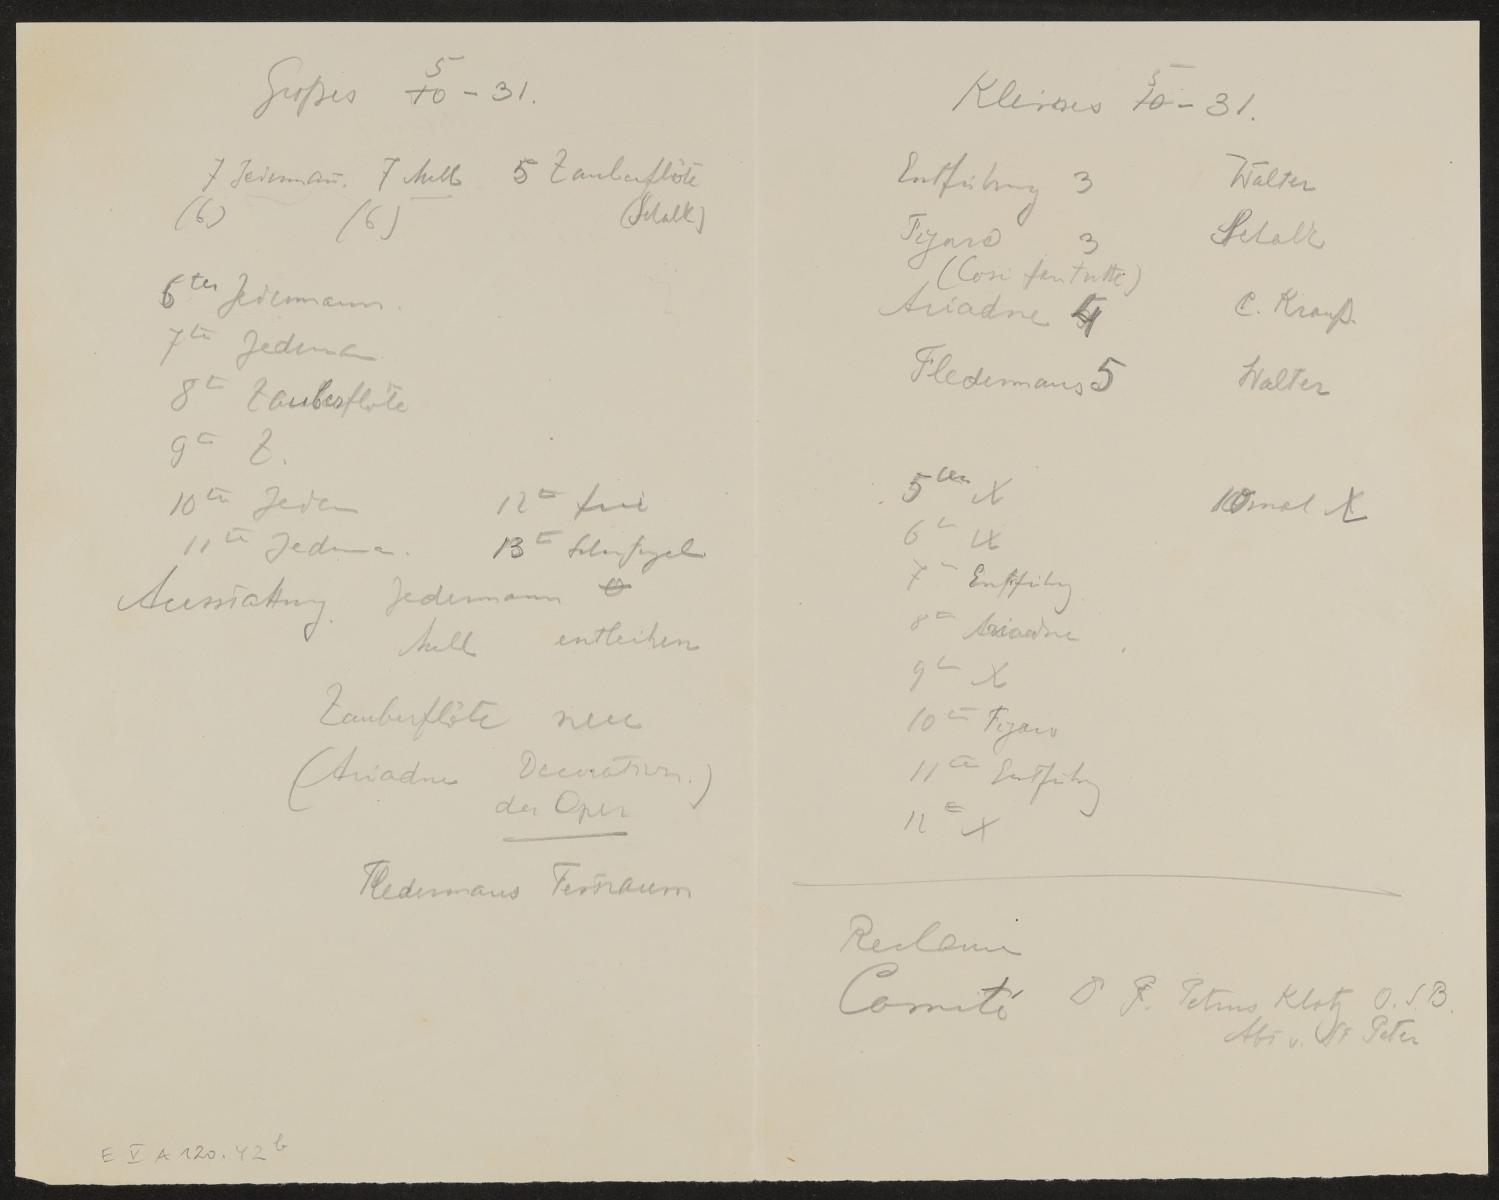 Großes 5 10 - 31.
7 Jedermann. 7 Mell 5 Zauberflöte
(6) (6) (Schalk)
6ten Jedermann.
7te Jederma
8t Zauberflöte
9t Z.
10te Jeder 12t frei
11te Jederma. 13t
Ausstattung Jedermann
Mell entleihen
Zauberflöte neu
(Ariadne Decoration.)
der Oper
Fledermaus Festraum
E V A 120.42b
Kleines 5 10 - 31.
Entführung 3 Walter
Figaro 3 Schalk
(Cosi fan tutte)
Ariadne 4 C. Krauß.
Fledermaus 5 Walter
5ten X 10 mal X
6t X
7t Entführg
8t Ariadne
9t X
10te Figaro
11te Entführg
12t X
Reclame
Comité Petrus Klotz O.S.B.
Abt v. St Peter